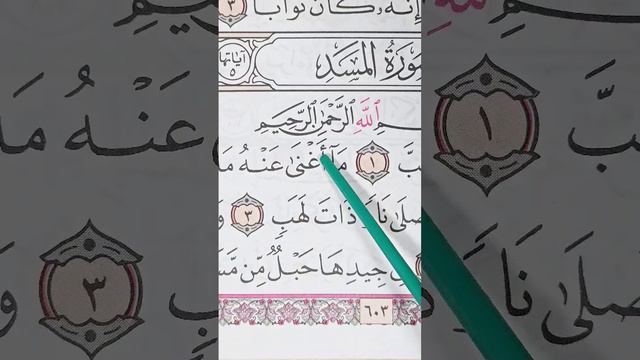 إِنَّهُ كَانَ تَوَّابًا ٣
سُورَةُ المَسَدِ آيَاتُهَا ٥
ٱللَّهِ ٱلرَّحْمَٰنِ ٱلرَّحِيمِ
تَبَّ ١ مَآ أَغْنَىٰ عَنْهُ مَا
ذَاتَ لَهَبٍ ٣ وَ
جِيدِهَا حَبْلٌ مِّن مَّسَدٍ
٦٠٣